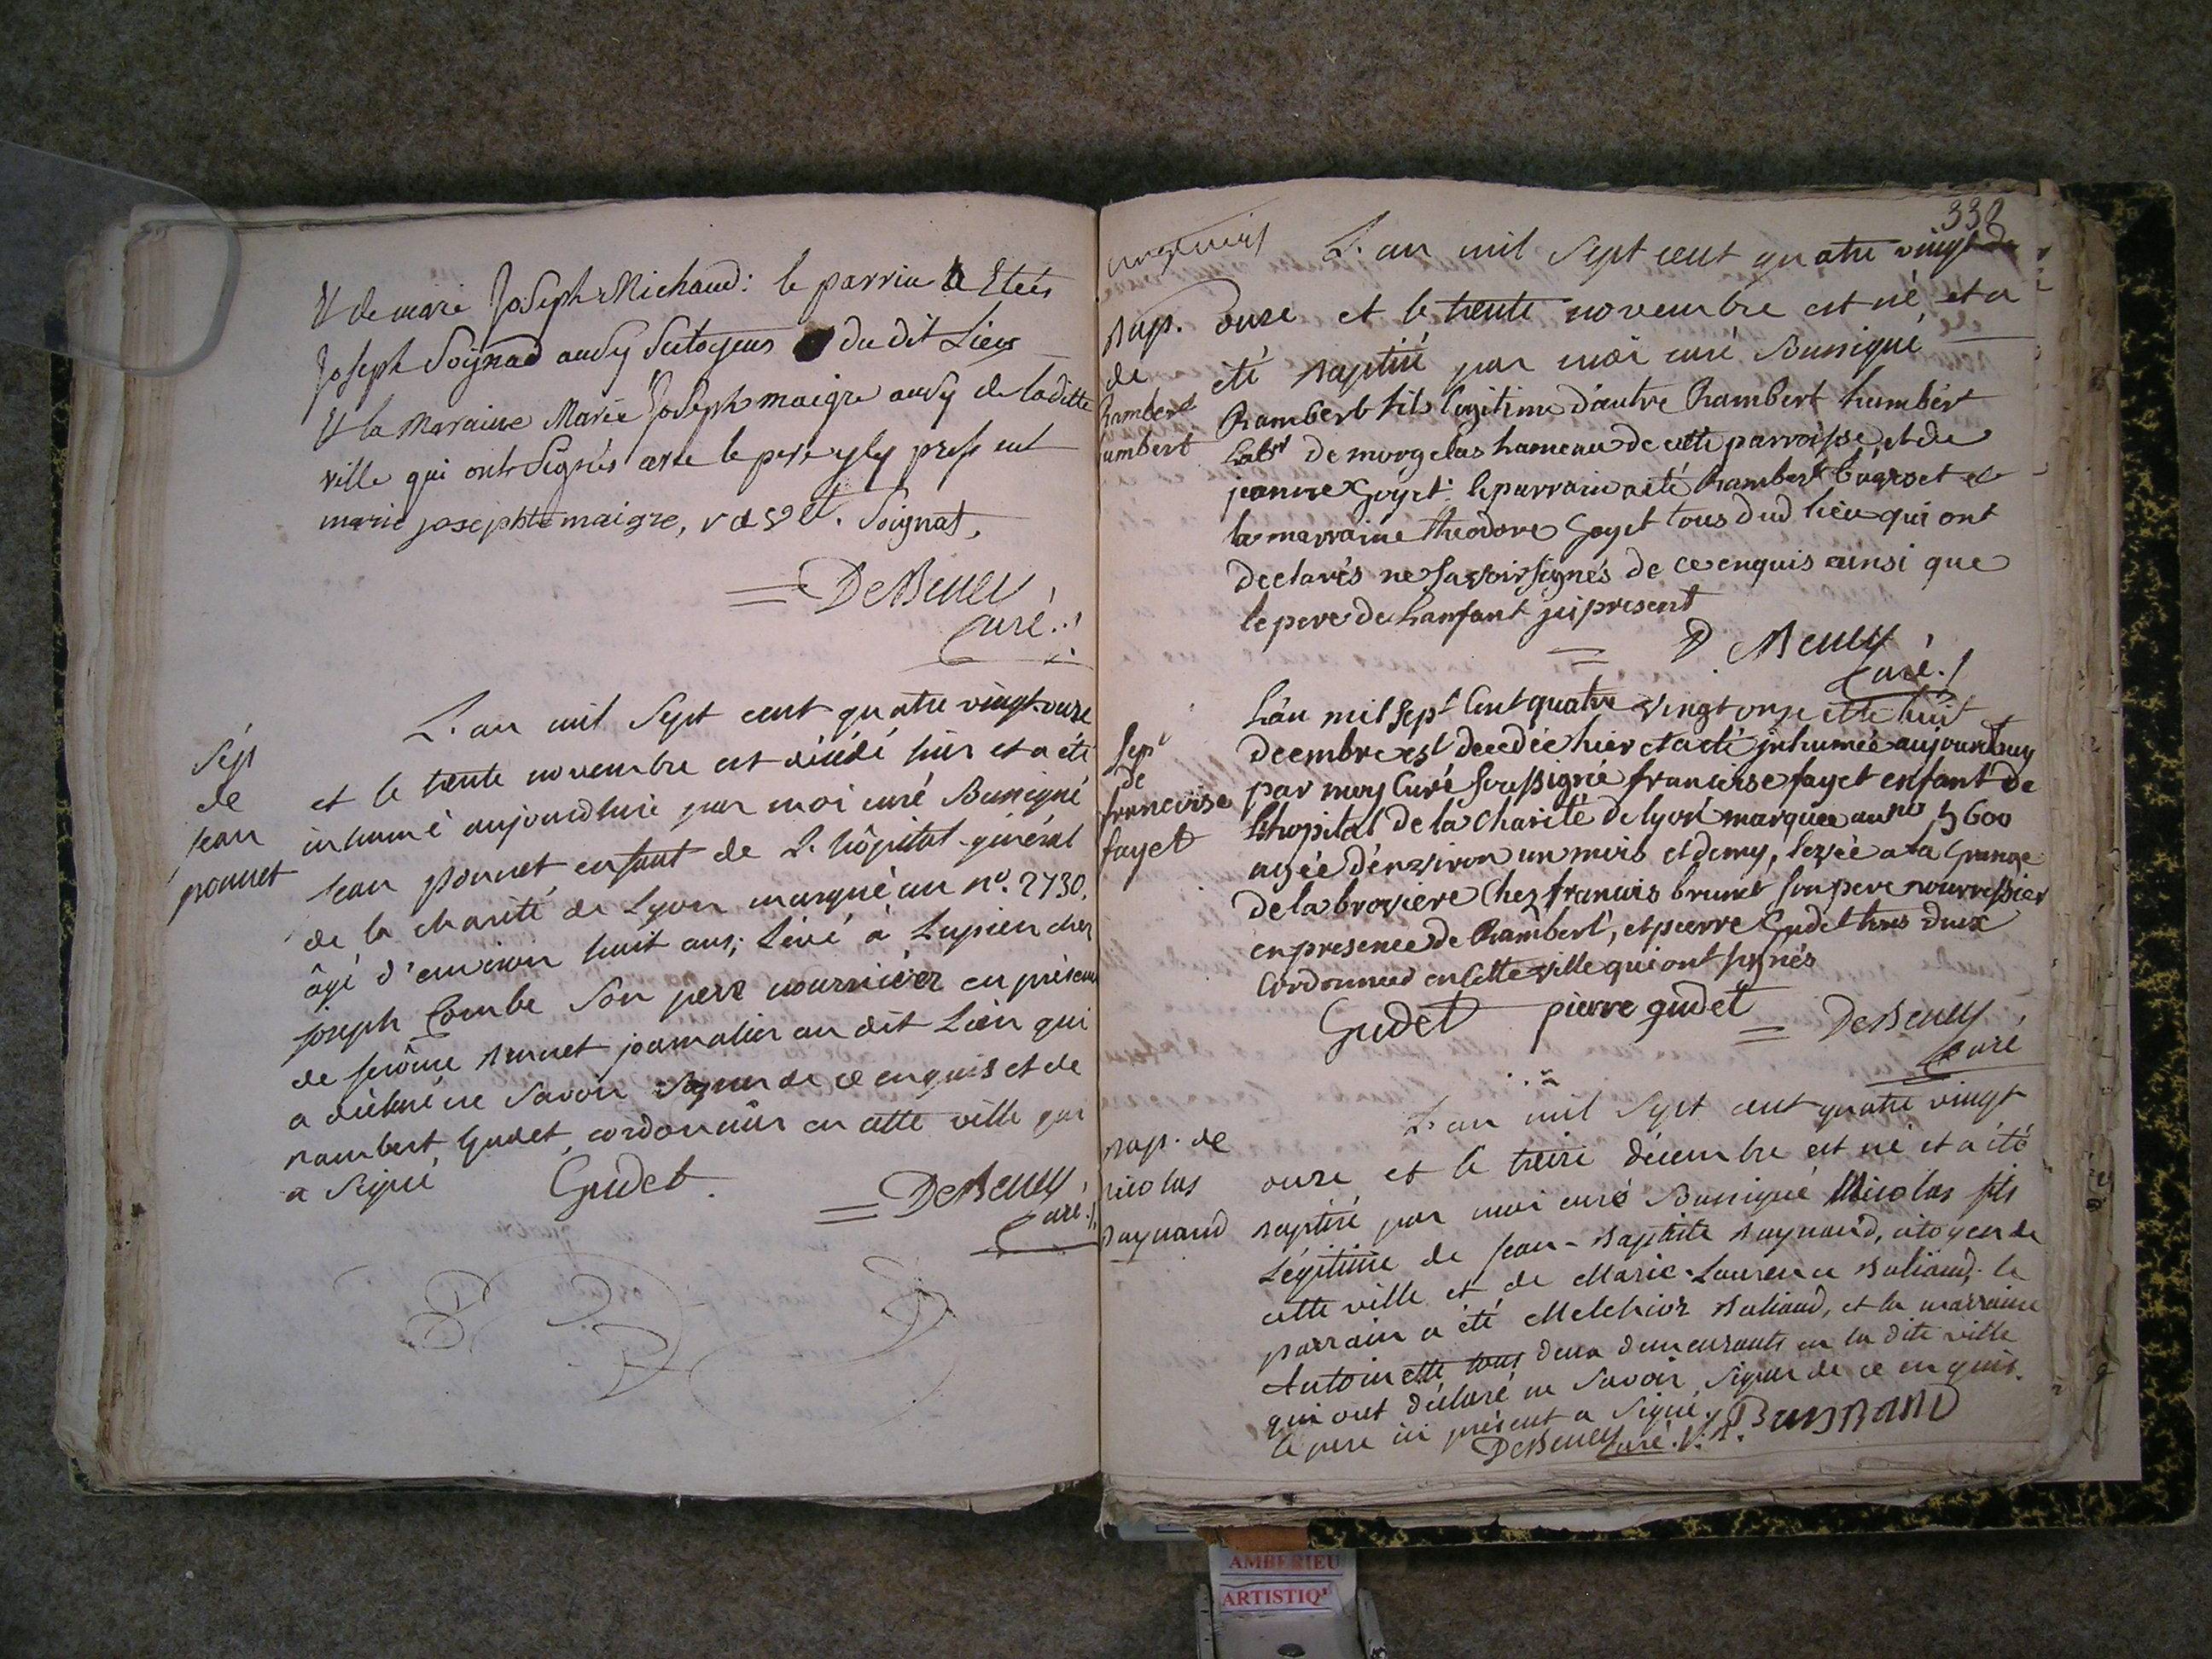 & de marie Joseph Michaud: le parrin a Etées
Joseph Soignad ausy Sitoyens du dit Lieu
& la Maraine Marie Joseph maigre ausy de ladite
ville qui ont Signés avec le pere yly present
marie josephte maigre, Soignat,
= DeBeney
Curé
Sép
de
jean
ponnet
L'an mil Sept cent quatre vingt-onze
et le trente novembre est décédé hier et a été
inhumé aujourdhui par moi curé Soussigné
jean ponnet enfant de L'hôpital-général
de la charité de Lyon marqué au n°. 2730.
âgé d'environ huit ans; Levé à Lupieu chez
joseph Combe Son pere nourricier en présence
de jerôme Bonnet journalier au dit Lieu qui
a déclaré ne Savoir Signer de ce enquis et de
rambert Gudet, cordonnier en cette ville qui
a Signé Gudet. = DeBeney
Curé
332
L'an mil Sept cent quatre vingt
Bap.
de
Rambert
humbert
onze et le trente novembre est né et a
été Baptisé par moi curé Soussigné
Rambert fils legitime d'autre Rambert humbert
Labr de morgelas hameau de cette parroisse, et de
jeanne Goyet: le parrain a été Rambert et
la marraine theodore Goyet tous dud lieu qui ont
declarés ne savoir signés de ce enquis ainsi que
le pere de Lanfant ici present
= D. Beney
Curé
Sept
de
francoise
fayet
L'an mil sept Cent quatre vingt onze et le huit
decembre est decedée hier et a eté jnhumée aujourdhuy
par moy Curé soussigné francoise fayet enfant de
Lhopital de la Charité de lyon marquée au no 5600
agée d'environ un mois et demy, levée a la Grange
de la broviere Chez francois brunet son pere nourressier
en presence de Rambert, et pierre Gudet tous deux
Cordonnier en Cette ville qui ont signés
Gudet pierre gudet = DeBeney
Curé
Bap. de
nicolas
Baynand
L'an mil Sept cent quatre vingt
onze et le treize décembre est né et a été
Baptisé par moi curé Soussigné Nicolas fils
Légitime de jean-Baptiste Baynand, citoyen de
cette ville et de Marie-Laurence Baliand; le
parrain a été Melchior Baliand, et la marraine
Antoinette tous deux demeurants en la dite ville
qui ont déclaré ne Savoir Signer de ce enquis.
le pere ici présent a Signé.
DeBeney Curé
AMBERIEU
ARTISTIQ'